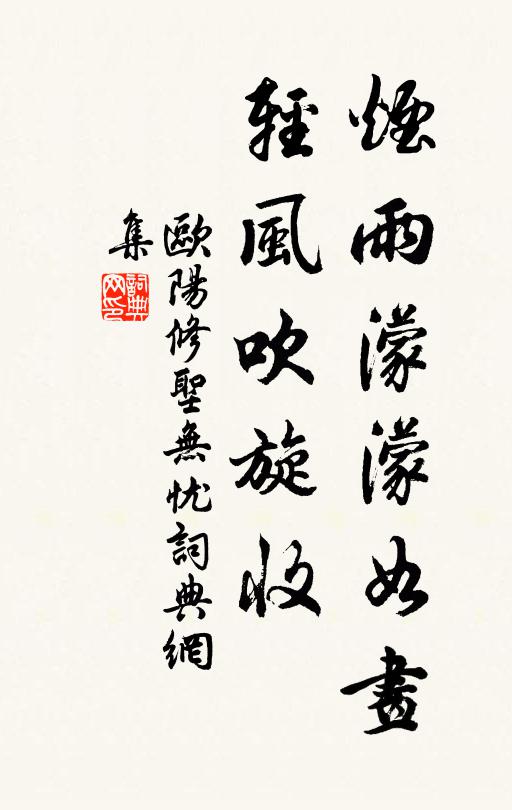 煙雨濛濛如畫
輕風吹旋收
歐陽修聖無憂詞典網
集
詞典
网印